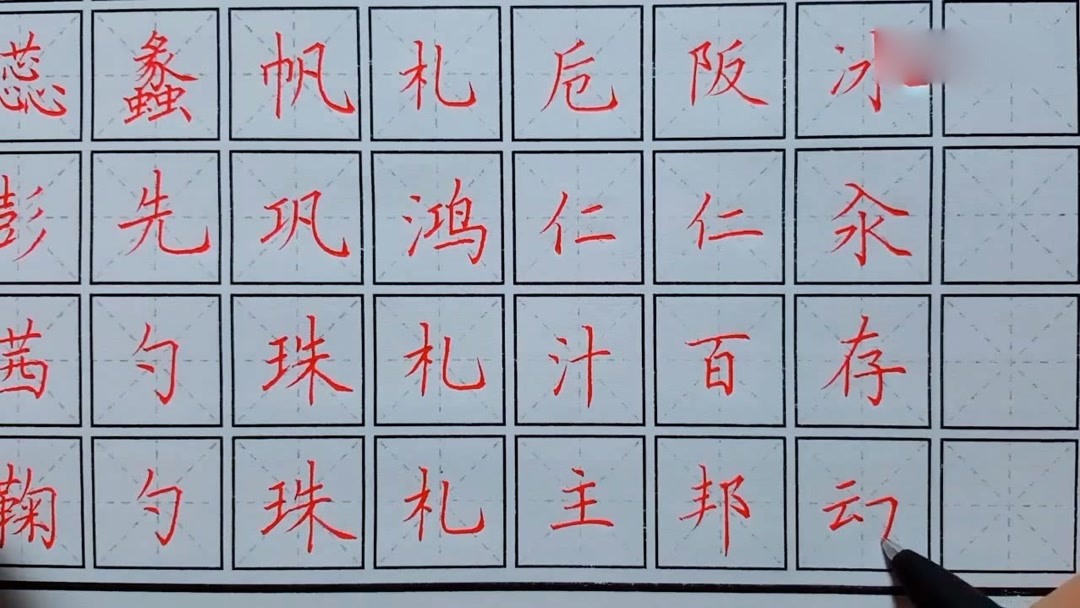 蕊蠡帆札卮阪冰
彭先巩鸿仁仁汆
茜勺珠札汁百存
鞠勺珠札主邦